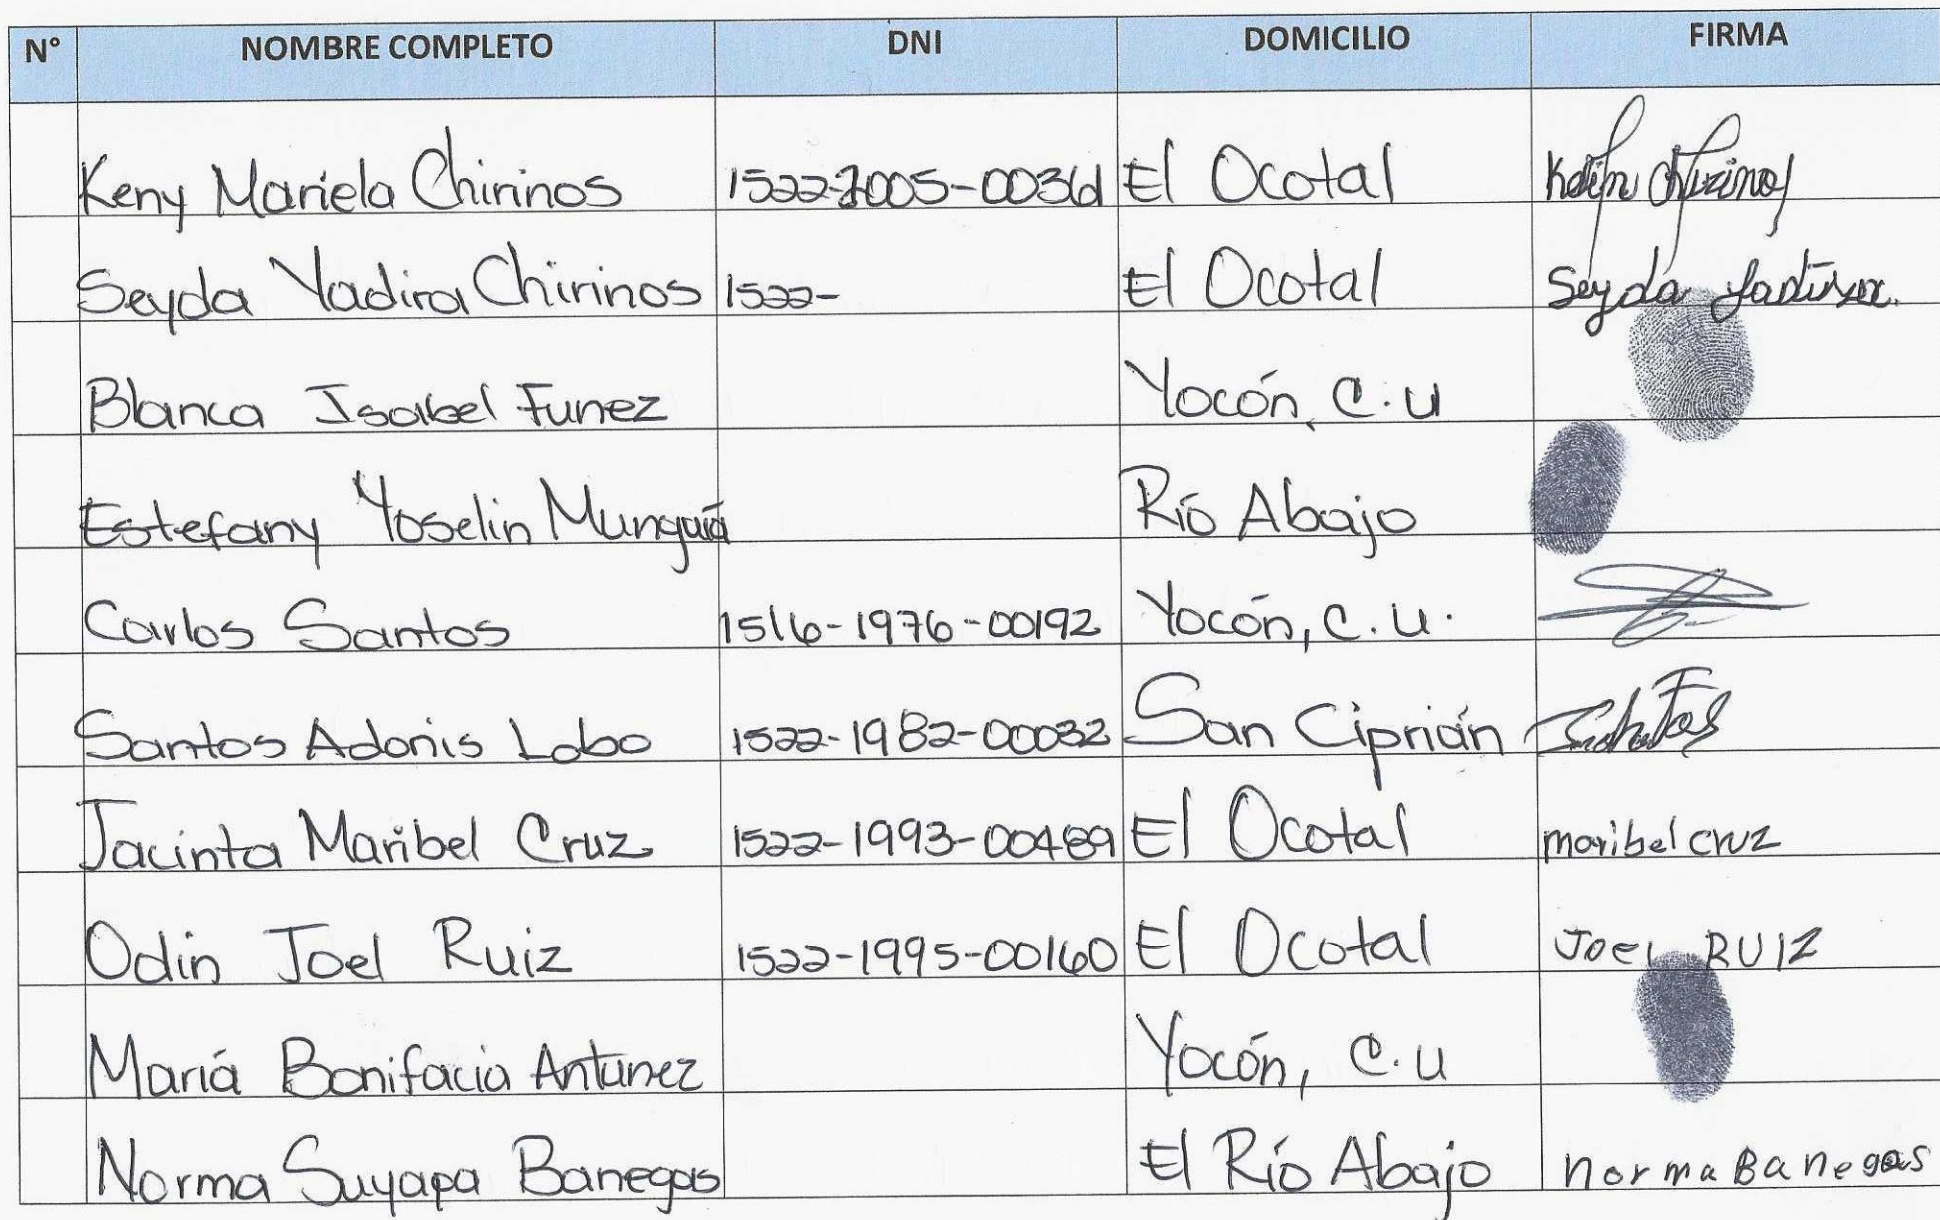 N° NOMBRE COMPLETO DNI DOMICILIO FIRMA
Keny Mariela Chirinos El Ocotal
Seyda Yadira Chirinos 1522- El Ocotal Seyda Yadira
Blanca Isabel Funez Yocón, C.U
Estefany Yoselin Munguiá Río Abajo
Carlos Santos 1516-1976-00192 Yocón, C.U.
Santos Adonis Lobo 1522-1982-00032 San Ciprián
Jacinta Maribel Cruz 1522-1993-00489 El Ocotal maribel cruz
Odin Joel Ruiz 1522-1995-00160 El Ocotal JOEL RUIZ
Mariá Bonifacia Antunez Yocón, C.U
Norma Suyapa Banegas El Río Abajo Norma Banegas